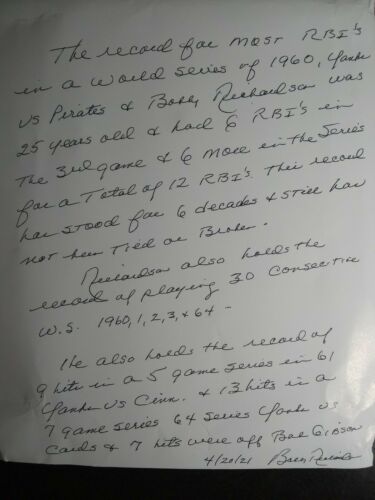 The record for most RBI's
in a World Series of 1960, Yanks
vs Pirates & Bobby Richardson was
25 years old & had 6 RBI's in
The 3rd game & 6 more in the Series
for a Total of 12 RBI's. This record
has stood for 6 decades & still has
not been Tied or Broken.
Richardson also holds the
record of playing 30 consecutive
W.S. 1960, 1, 2, 3, & 64 -
He also holds the record of
9 hits in a 5 game series in 61
Yanks vs Cinn. & 13 hits in a
7 game series 64 series Yanks vs
Cards & 7 hits were off Bob Gibson
4/20/21